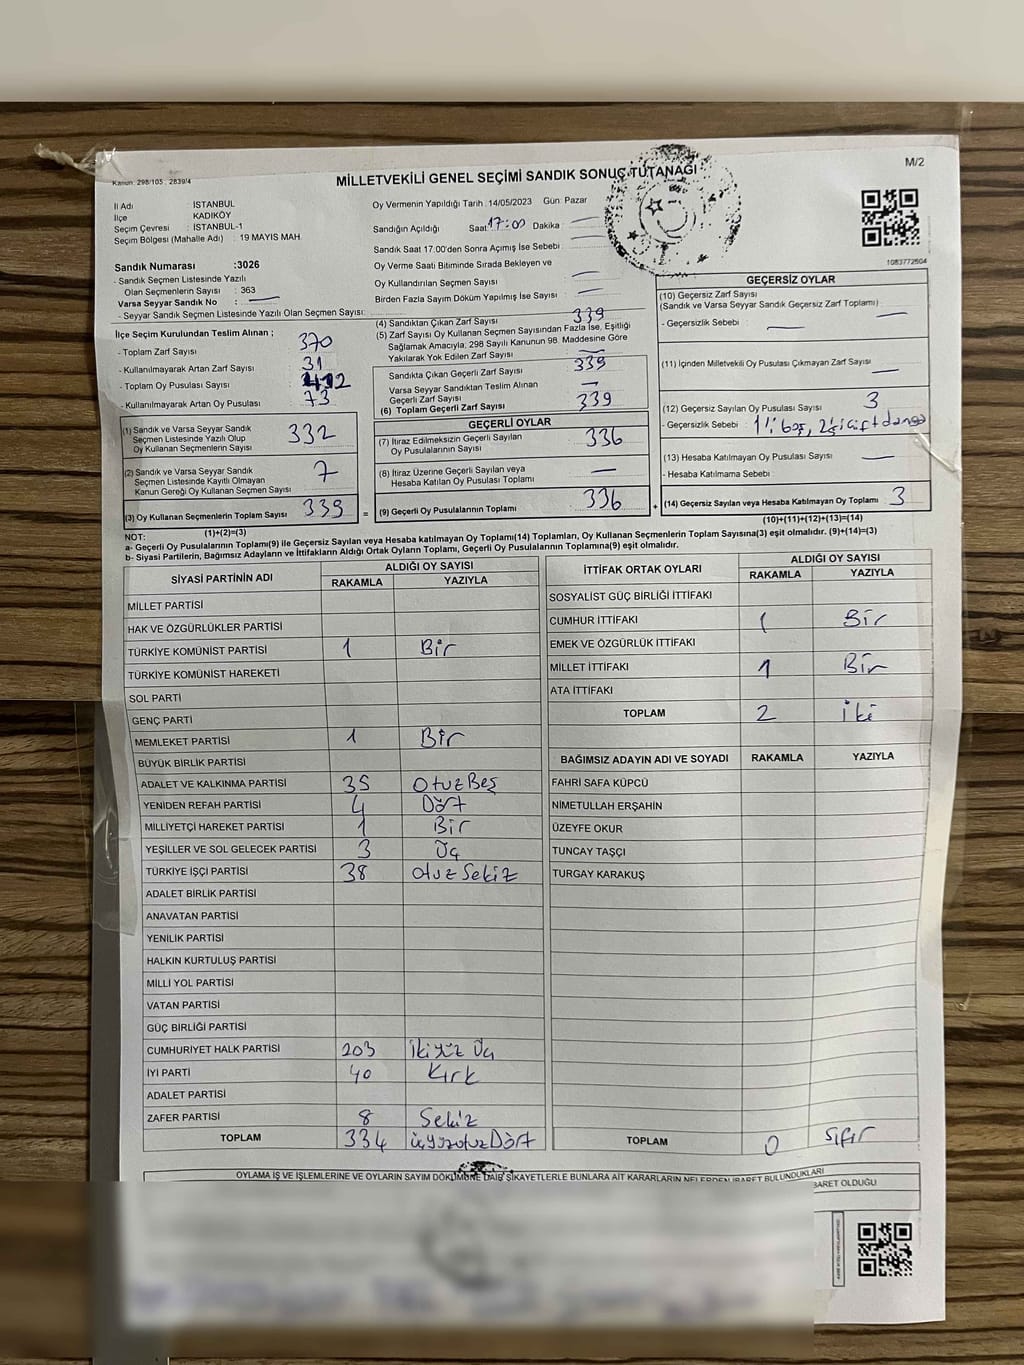 Kanun: 298/105, 2839/4
M/2
MİLLETVEKİLİ GENEL SEÇİMİ SANDIK SONUÇ TUTANAĞI
İl Adı : İSTANBUL
İlçe : KADIKÖY
Seçim Çevresi : İSTANBUL-1
Seçim Bölgesi (Mahalle Adı) : 19 MAYIS MAH.
Oy Vermenin Yapıldığı Tarih : 14/05/2023 Gün: Pazar
Sandığın Açıldığı Saat 17:00 Dakika :
Sandık Saat 17.00'den Sonra Açımış İse Sebebi
Oy Verme Saati Bitiminde Sırada Bekleyen ve
Oy Kullandırılan Seçmen Sayısı
Birden Fazla Sayım Döküm Yapılmış İse Sayısı
1083772504
Sandık Numarası :3026
- Sandık Seçmen Listesinde Yazılı
Olan Seçmenlerin Sayısı : 363
Varsa Seyyar Sandık No :
- Seyyar Sandık Seçmen Listesinde Yazılı Olan Seçmen Sayısı:
İlçe Seçim Kurulundan Teslim Alınan ;
- Toplam Zarf Sayısı 370
- Kullanılmayarak Artan Zarf Sayısı 31
- Toplam Oy Pusulası Sayısı 412
- Kullanılmayarak Artan Oy Pusulası 73
(1) Sandık ve Varsa Seyyar Sandık
Seçmen Listesinde Yazılı Olup
Oy Kullanan Seçmenlerin Sayısı 332
(2) Sandık ve Varsa Seyyar Sandık
Seçmen Listesinde Kayıtlı Olmayan
Kanun Gereği Oy Kullanan Seçmen Sayısı 7
(3) Oy Kullanan Seçmenlerin Toplam Sayısı 339
(1)+(2)=(3)
(4) Sandıktan Çıkan Zarf Sayısı 339
(5) Zarf Sayısı Oy Kullanan Seçmen Sayısından Fazla İse, Eşitliği
Sağlamak Amacıyla, 298 Sayılı Kanunun 98. Maddesine Göre
Yakılarak Yok Edilen Zarf Sayısı
Sandıkta Çıkan Geçerli Zarf Sayısı 339
Varsa Seyyar Sandıktan Teslim Alınan
Geçerli Zarf Sayısı
(6) Toplam Geçerli Zarf Sayısı 339
GEÇERLİ OYLAR
(7) İtiraz Edilmeksizin Geçerli Sayılan
Oy Pusulasının Sayısı 336
(8) İtiraz Üzerine Geçerli Sayılan veya
Hesaba Katılan Oy Pusulası Toplamı
(9) Geçerli Oy Pusulalarının Toplamı 336
GEÇERSİZ OYLAR
(10) Geçersiz Zarf Sayısı
(Sandık ve Varsa Seyyar Sandık Geçersiz Zarf Toplamı)
- Geçersizlik Sebebi :
(11) İçinden Milletvekili Oy Pusulası Çıkmayan Zarf Sayısı
(12) Geçersiz Sayılan Oy Pusulası Sayısı 3
- Geçersizlik Sebebi : 1'i boş, 2'si çift damga
(13) Hesaba Katılmayan Oy Pusulası Sayısı
- Hesaba Katılmama Sebebi
(14) Geçersiz Sayılan veya Hesaba Katılmayan Oy Toplamı 3
(10)+(11)+(12)+(13)=(14)
NOT:
a- Geçerli Oy Pusulalarının Toplamı(9) ile Geçersiz Sayılan veya Hesaba Katılmayan Oy Toplamı(14) Toplamları, Oy Kullanan Seçmenlerin Toplam Sayısına(3) eşit olmalıdır. (9)+(14)=(3)
b- Siyasi Partilerin, Bağımsız Adayların ve İttifakların Aldığı Ortak Oyların Toplamı, Geçerli Oy Pusulalarının Toplamına(9) eşit olmalıdır.
SİYASİ PARTİNİN ADI ALDIĞI OY SAYISI
RAKAMLA YAZIYLA
MİLLET PARTİSİ
HAK VE ÖZGÜRLÜKLER PARTİSİ
TÜRKİYE KOMÜNİST PARTİSİ 1 Bir
TÜRKİYE KOMÜNİST HAREKETİ
SOL PARTİ
GENÇ PARTİ
MEMLEKET PARTİSİ 1 Bir
BÜYÜK BİRLİK PARTİSİ
ADALET VE KALKINMA PARTİSİ 35 Otuz Beş
YENİDEN REFAH PARTİSİ 4 Dört
MİLLİYETÇİ HAREKET PARTİSİ 1 Bir
YEŞİLLER VE SOL GELECEK PARTİSİ 3 Üç
TÜRKİYE İŞÇİ PARTİSİ 38 Otuz Sekiz
ADALET BİRLİK PARTİSİ
ANAVATAN PARTİSİ
YENİLİK PARTİSİ
HALKIN KURTULUŞ PARTİSİ
MİLLİ YOL PARTİSİ
VATAN PARTİSİ
GÜÇ BİRLİĞİ PARTİSİ
CUMHURİYET HALK PARTİSİ 203 İki yüz Üç
İYİ PARTİ 40 Kırk
ADALET PARTİSİ
ZAFER PARTİSİ 8 Sekiz
TOPLAM 334 üçyüzotuzDört
İTTİFAK ORTAK OYLARI ALDIĞI OY SAYISI
RAKAMLA YAZIYLA
SOSYALİST GÜÇ BİRLİĞİ İTTİFAKI
CUMHUR İTTİFAKI 1 Bir
EMEK VE ÖZGÜRLÜK İTTİFAKI
MİLLET İTTİFAKI 1 Bir
ATA İTTİFAKI
TOPLAM 2 İki
BAĞIMSIZ ADAYIN ADI VE SOYADI RAKAMLA YAZIYLA
FAHRİ SAFA KÜPCÜ
NİMETULLAH ERŞAHİN
ÜZEYFE OKUR
TUNCAY TAŞÇI
TURGAY KARAKUŞ
TOPLAM 0 Sıfır
OYLAMA İŞ VE İŞLEMLERİNE VE OYLARIN SAYIM DÖKÜMÜNE DAİR ŞİKAYETLERLE BUNLARA AİT KARARLARIN NELERDEN İBARET BULUNDUKLARI
BARET OLDUĞU